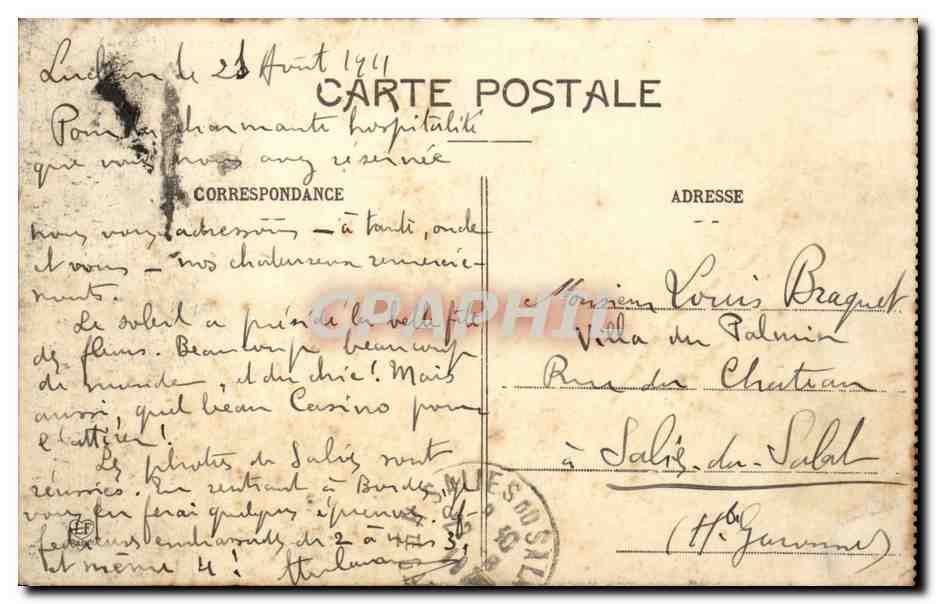 Luchon le 21 Août 1911
CARTE POSTALE
Pour la charmante hospitalité
que vous nous avez réservée
CORRESPONDANCE
nous vous adressons - à tante, oncle
et vous - nos chaleureux remercie-
ments.
Le soleil a présidé la belle fête
des fleurs. Beaucoup beaucoup
de monde, et du chic! Mais
aussi, quel beau Casino pour
l'attirer!
Les photos de Salies sont
réussies. En rentrant à Bordeaux, je
vous en ferai quelques épreuves.
embrassades de 2 à 3
et même 4!
ADRESSE
Monsieur Louis Braquet
Villa du Palmier
Rue du Chateau
à Salies-du-Salat
(Hte Garonne)
SALIES DU SALAT
CPAPHIL